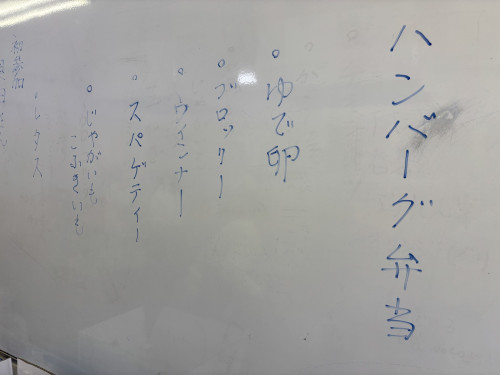 ハンバーグ弁当
。ゆで卵
。ブロッコリー
。ウインナー
。スパゲティー
。じゃがいも
こふきいも
レタス